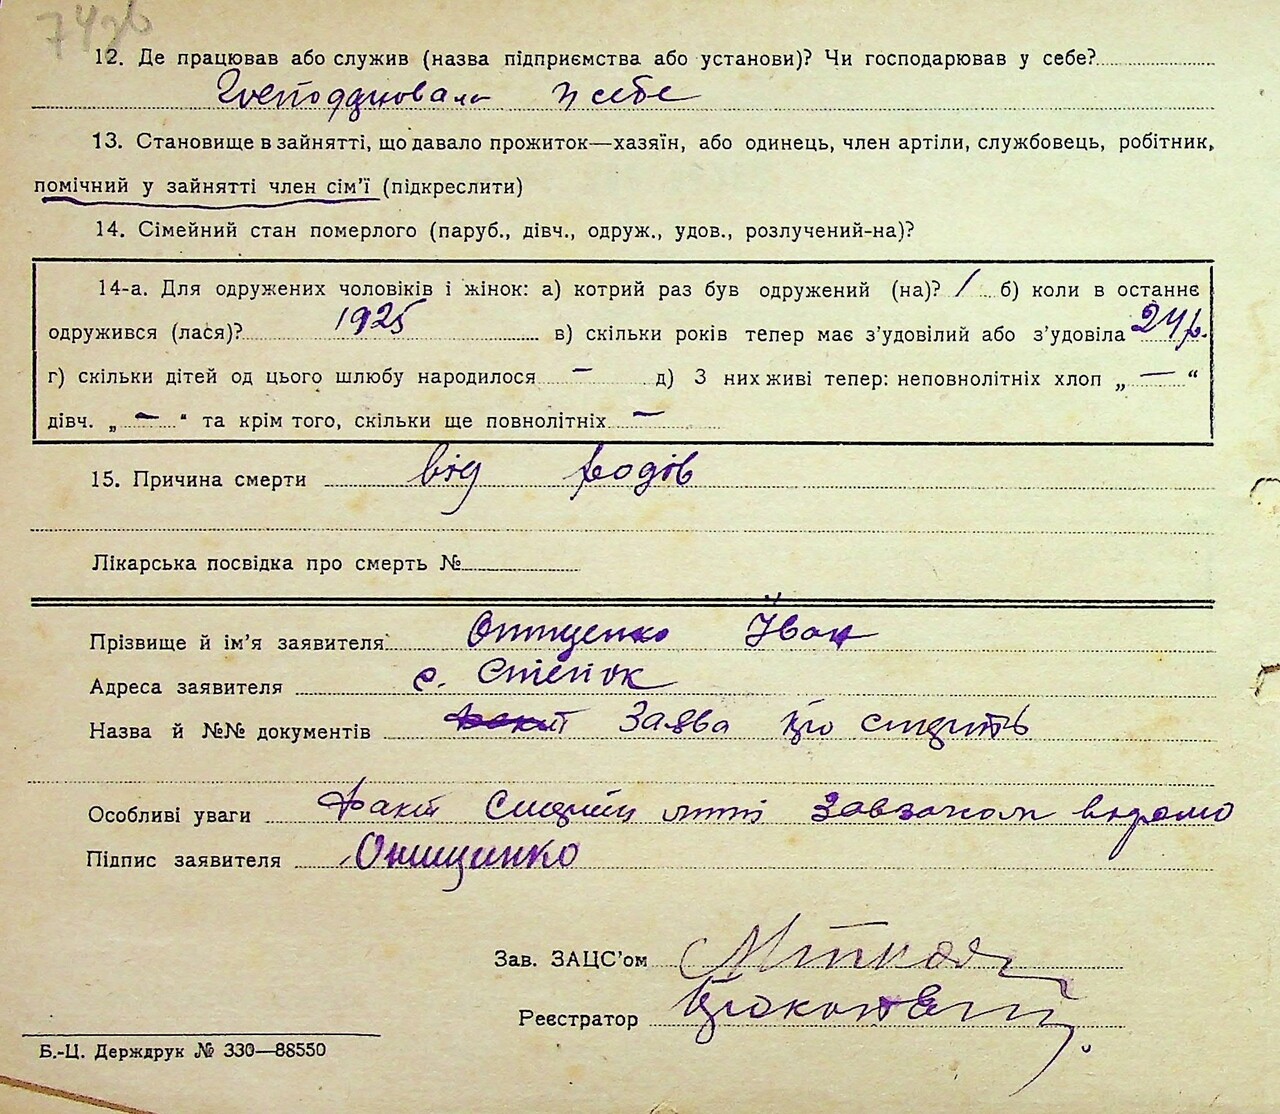 74зв
12. Де працював або служив (назва підприємства або установи)? Чи господарював у себе?
Господарювала у себе
13. Становище в зайнятті, що давало прожиток—хазяїн, або одинець, член артіли, службовець, робітник,
помічний у зайнятті член сім'ї (підкреслити)
14. Сімейний стан померлого (паруб., дівч., одруж., удов., розлучений-на)?
14-а. Для одружених чоловіків і жінок: а) котрий раз був одружений (на)? 1 б) коли в останнє
одружився (лася)? 1925 в) скільки років тепер має з'удовілий або з'удовіла 24 р.
г) скільки дітей од цього шлюбу народилося — д) З них живі тепер: неповнолітніх хлоп „ — “
дівч. „ — “ та крім того, скільки ще повнолітніх —
15. Причина смерти від родів
Лікарська посвідка про смерть №
Прізвище й ім'я заявителя Онищенко Іван
Адреса заявителя с. Степок
Назва й №№ документів Заява про смерть
Особливі уваги Факт смерти
Підпис заявителя Онищенко
Зав. ЗАЦС'ом
Реєстратор
Б.-Ц. Держдрук № 330—88550